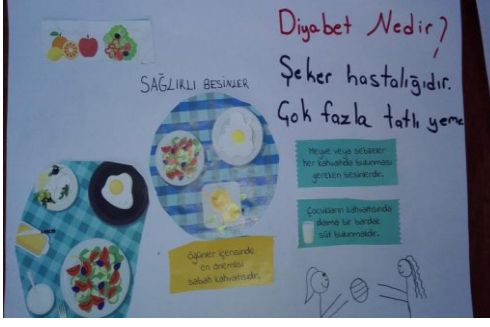 Diyabet Nedir?
Şeker hastalığıdır.
Çok fazla tatlı yeme
SAĞLIKLI BESİNLER
Meyve veya sebzeler
her kahvaltıda bulunması
gereken besinlerdir.
Çocukların kahvaltısında
daima bir bardak
süt bulunmalıdır.
öğünler içerisinde
en önemlisi
sabah kahvaltısıdır.